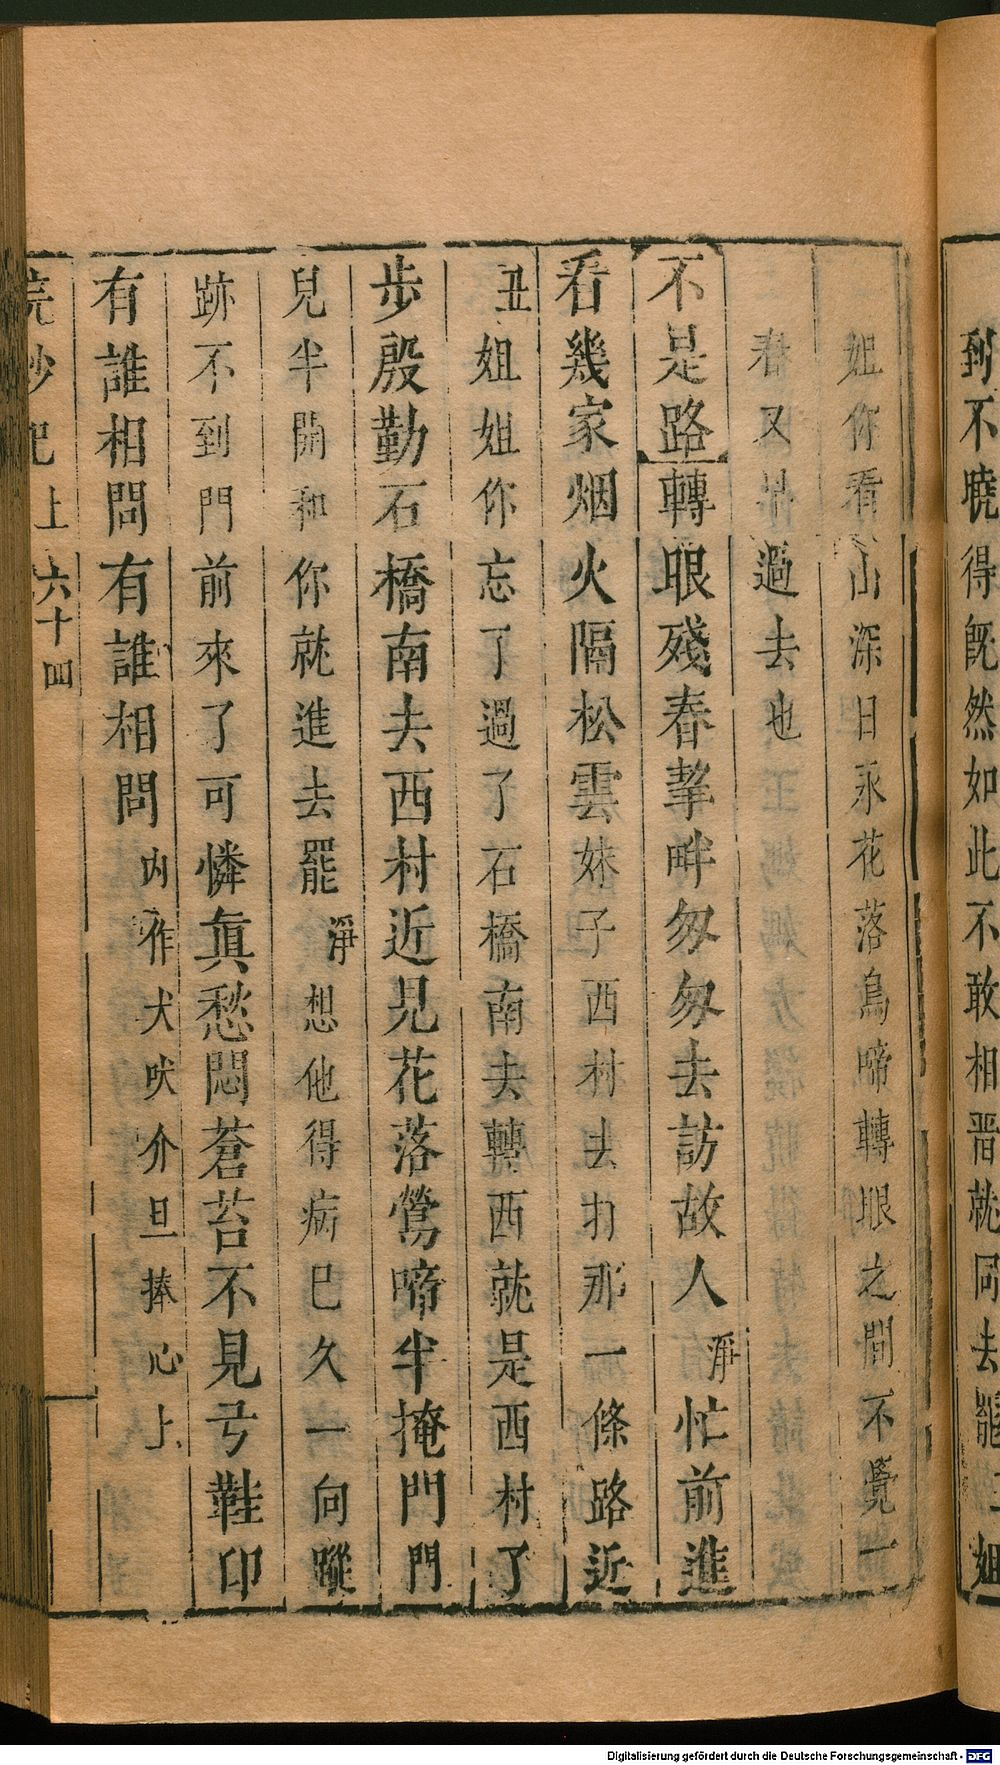 到不曉得旣然如此不敢相晋就同去罷二姐
姐你看山深日永花落鳥啼轉眼之間不覺一
春又 過去也
不是路 轉眼殘春挈畔匆匆去訪故人淨忙前進
看幾家烟火隔松雲妹子西村去扪那一條路近
丑姐姐你忘了過了石橋南去轉西就是西村了
步殷勤石橋南去西村近見花落鶯啼半掩門門
兒半開和你就進去罷淨想他得病已久一向蹤
跡不到門前來了可憐真愁悶蒼苔不見弓鞋印
有誰相問有誰相問內作犬吠介旦捧心上
上 六十四
Digitalisierung gefördert durch die Deutsche Forschungsgemeinschaft - DFG